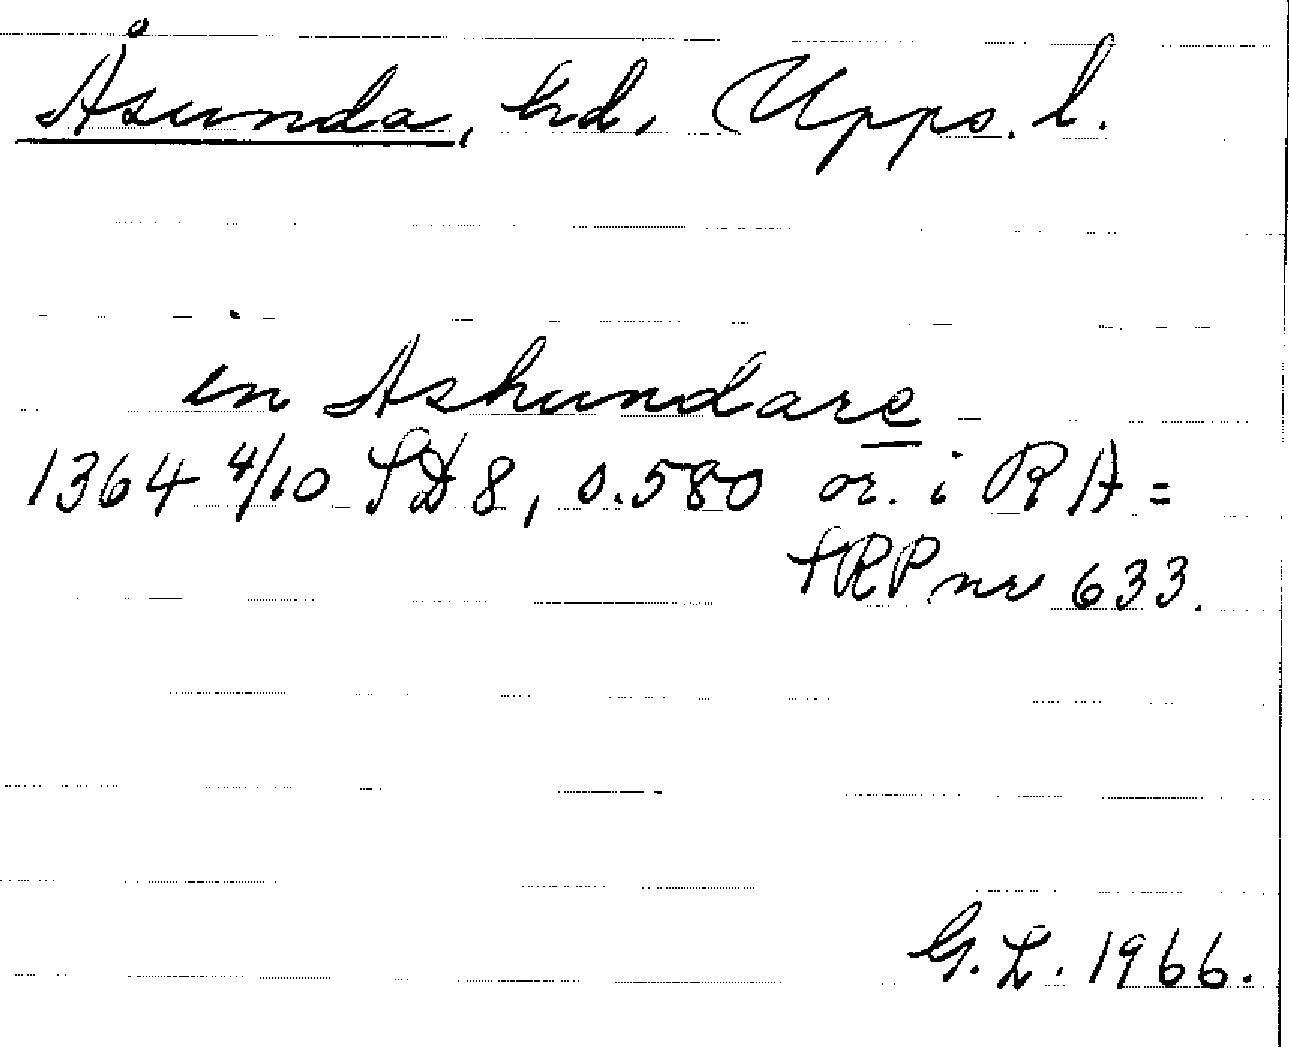 Åsunda, hd, Upps. l.
in Ashundare
1364 4/10 SD 8, s. 580 or. i RA =
SRP nr 633.
G. L. 1966.